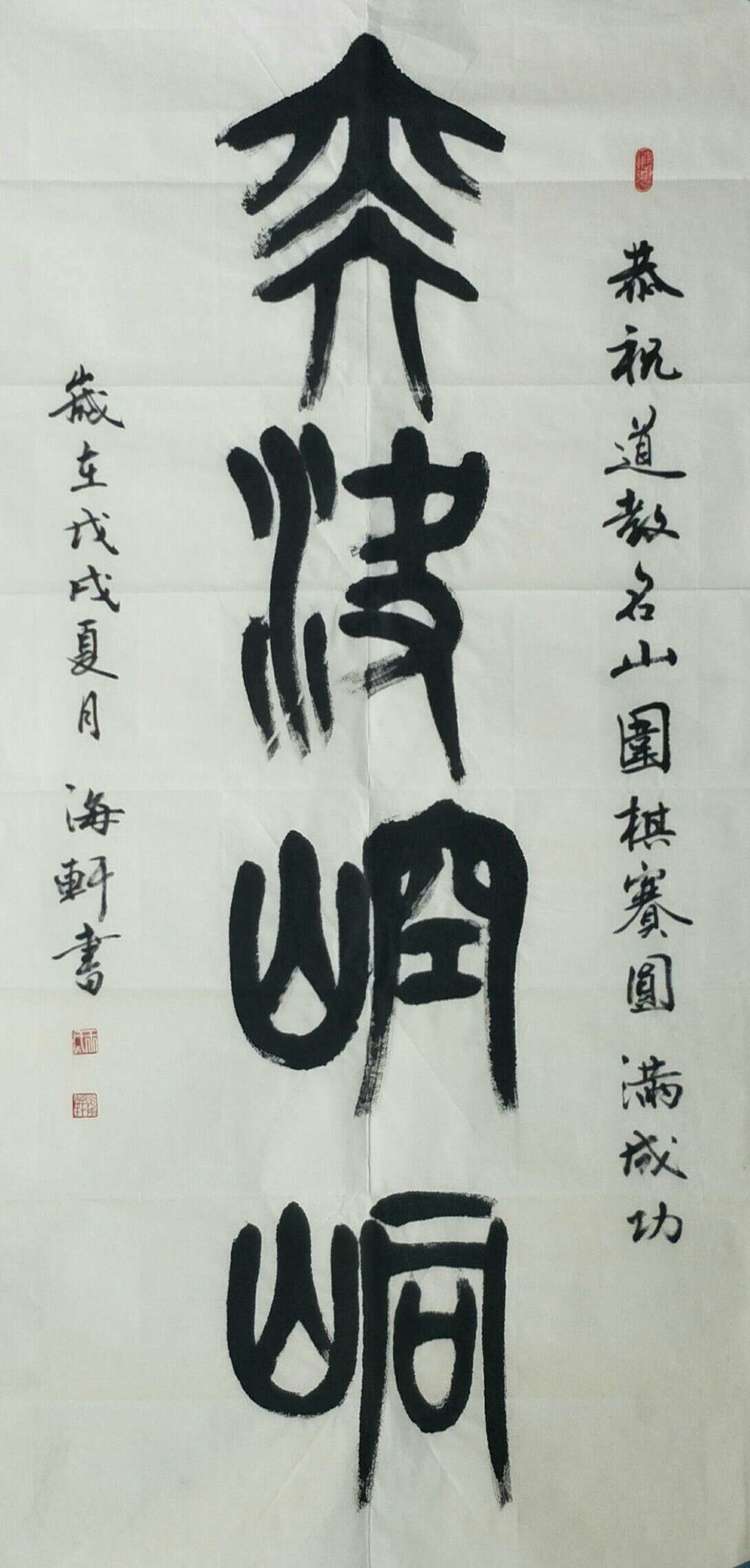 恭祝道教名山圍棋賽圓滿成功
奕決崆峒
歲在戊戌夏月 海軒書